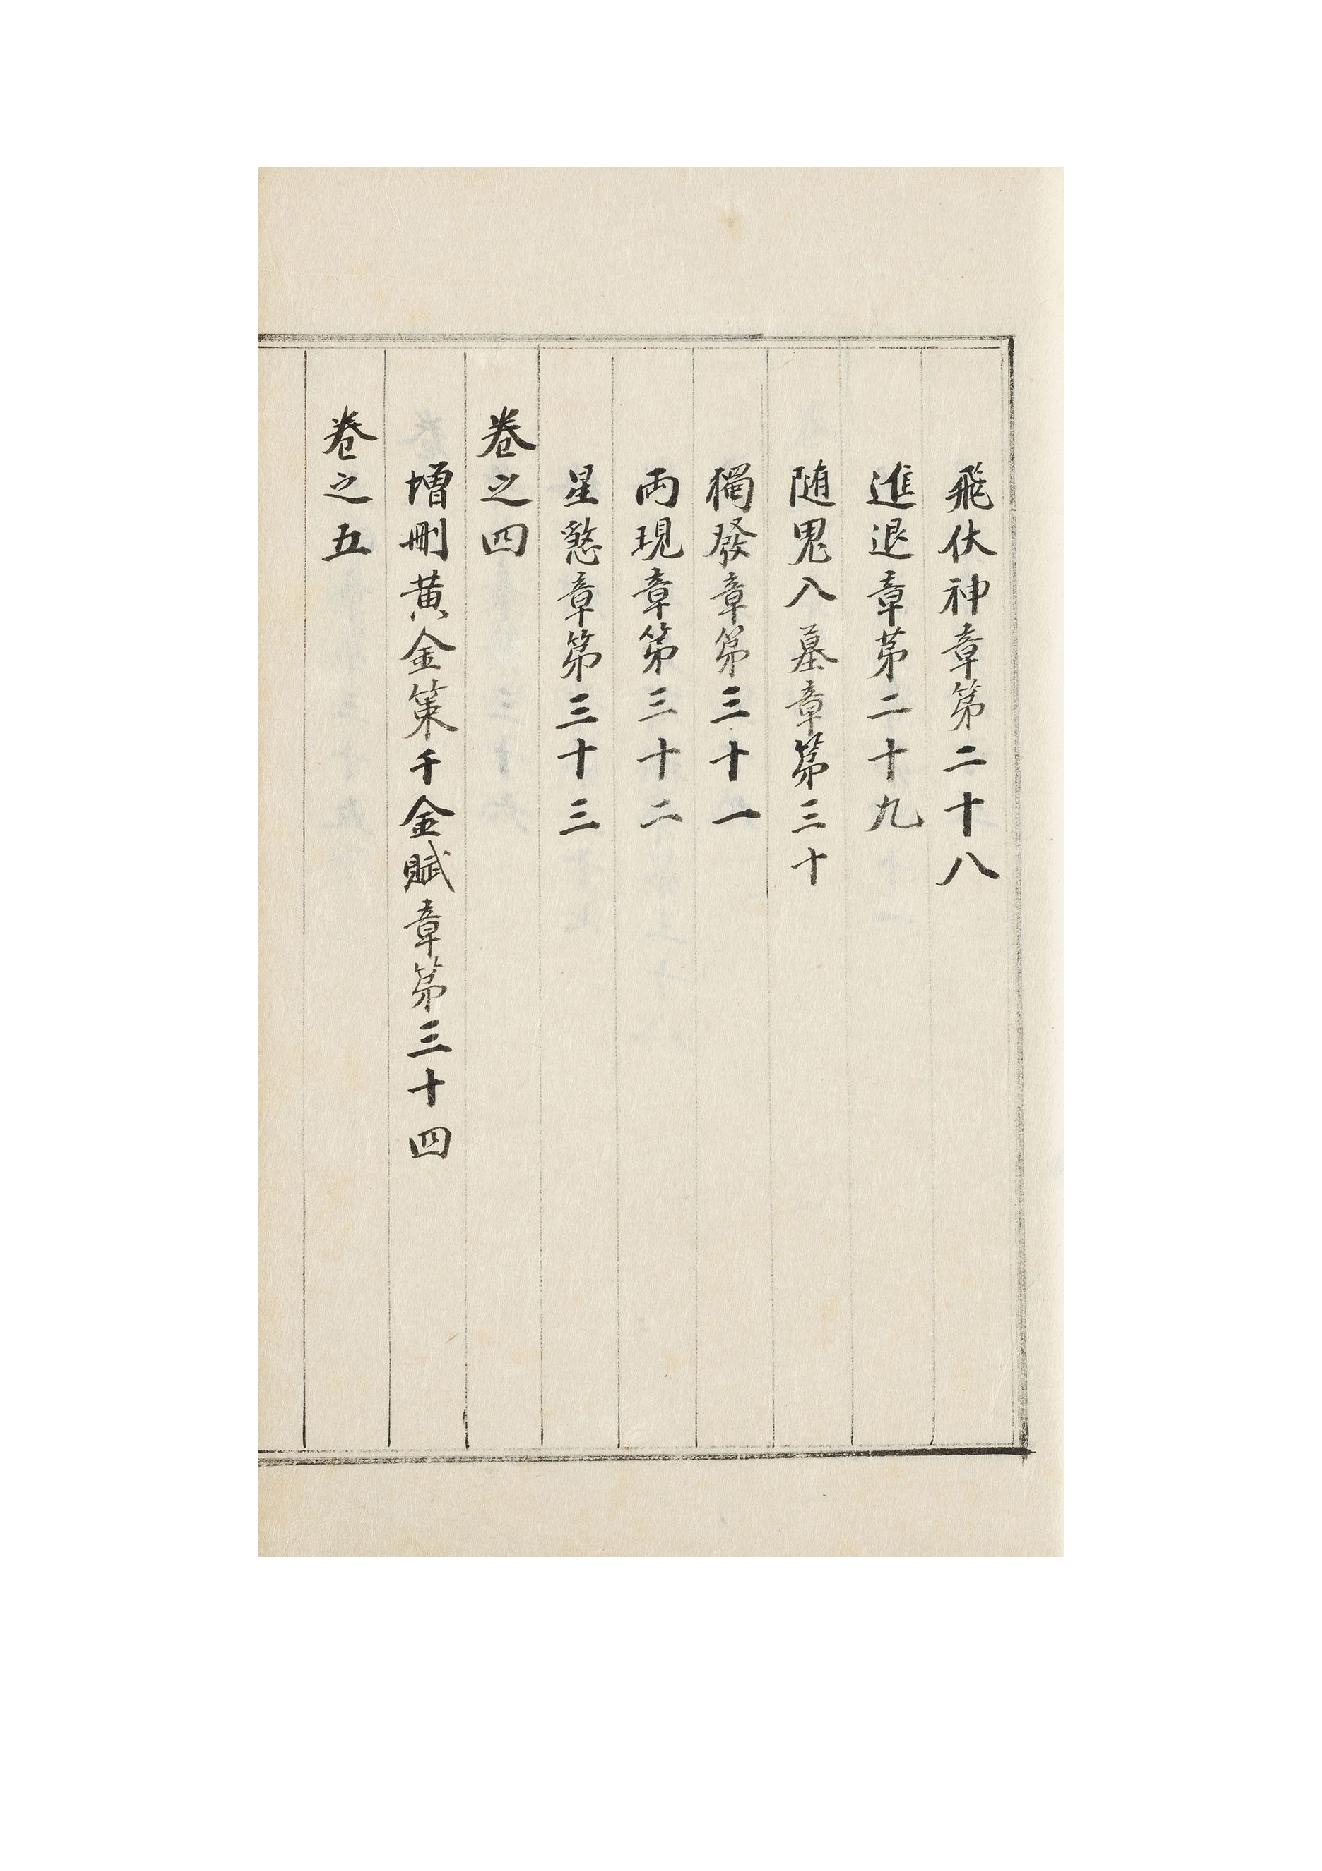 飛伏神章第二十八
進退章苐二十九
随鬼入墓章第三十
獨發章第三十一
两現章第三十二
星煞章第三十三
卷之四
增刪黄金策千金賦章第三十四
卷之五